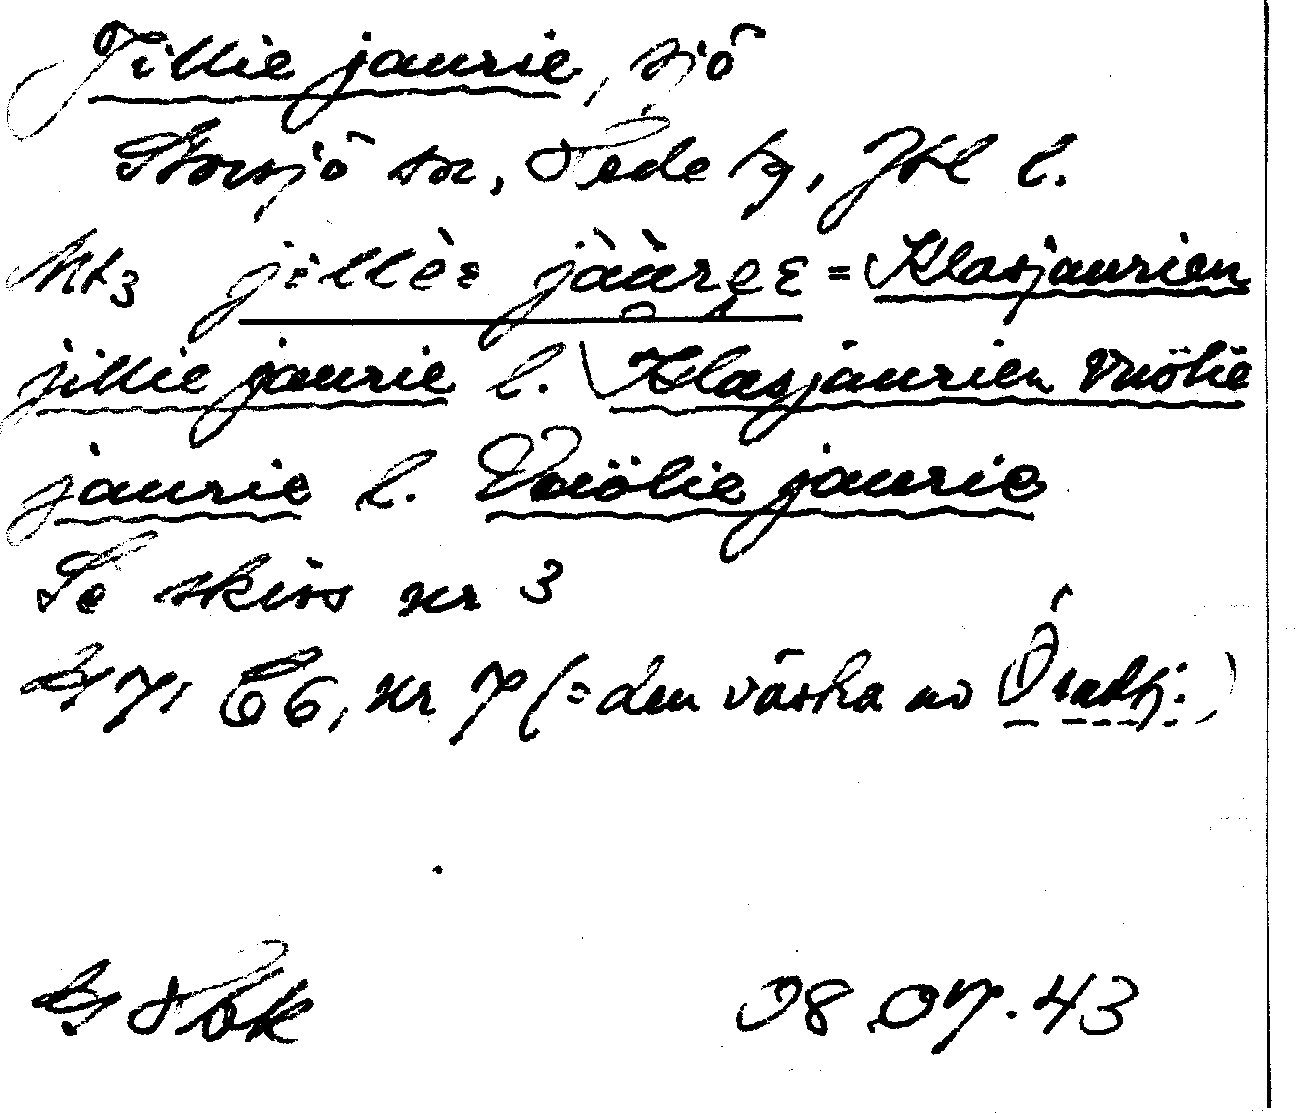 Jillie jaurie, sjö
Storsjö sn, Tede tg, Jtl l.
Mt3 jìllèɛ jààrẹɛ = Klasjaurien
jillie jaurie l. Klasjaurien Vuölie
jaurie l. Vuölie jaurie
Se skiss nr 3
71 C6, nr 7 (= den västra av
08.07.43